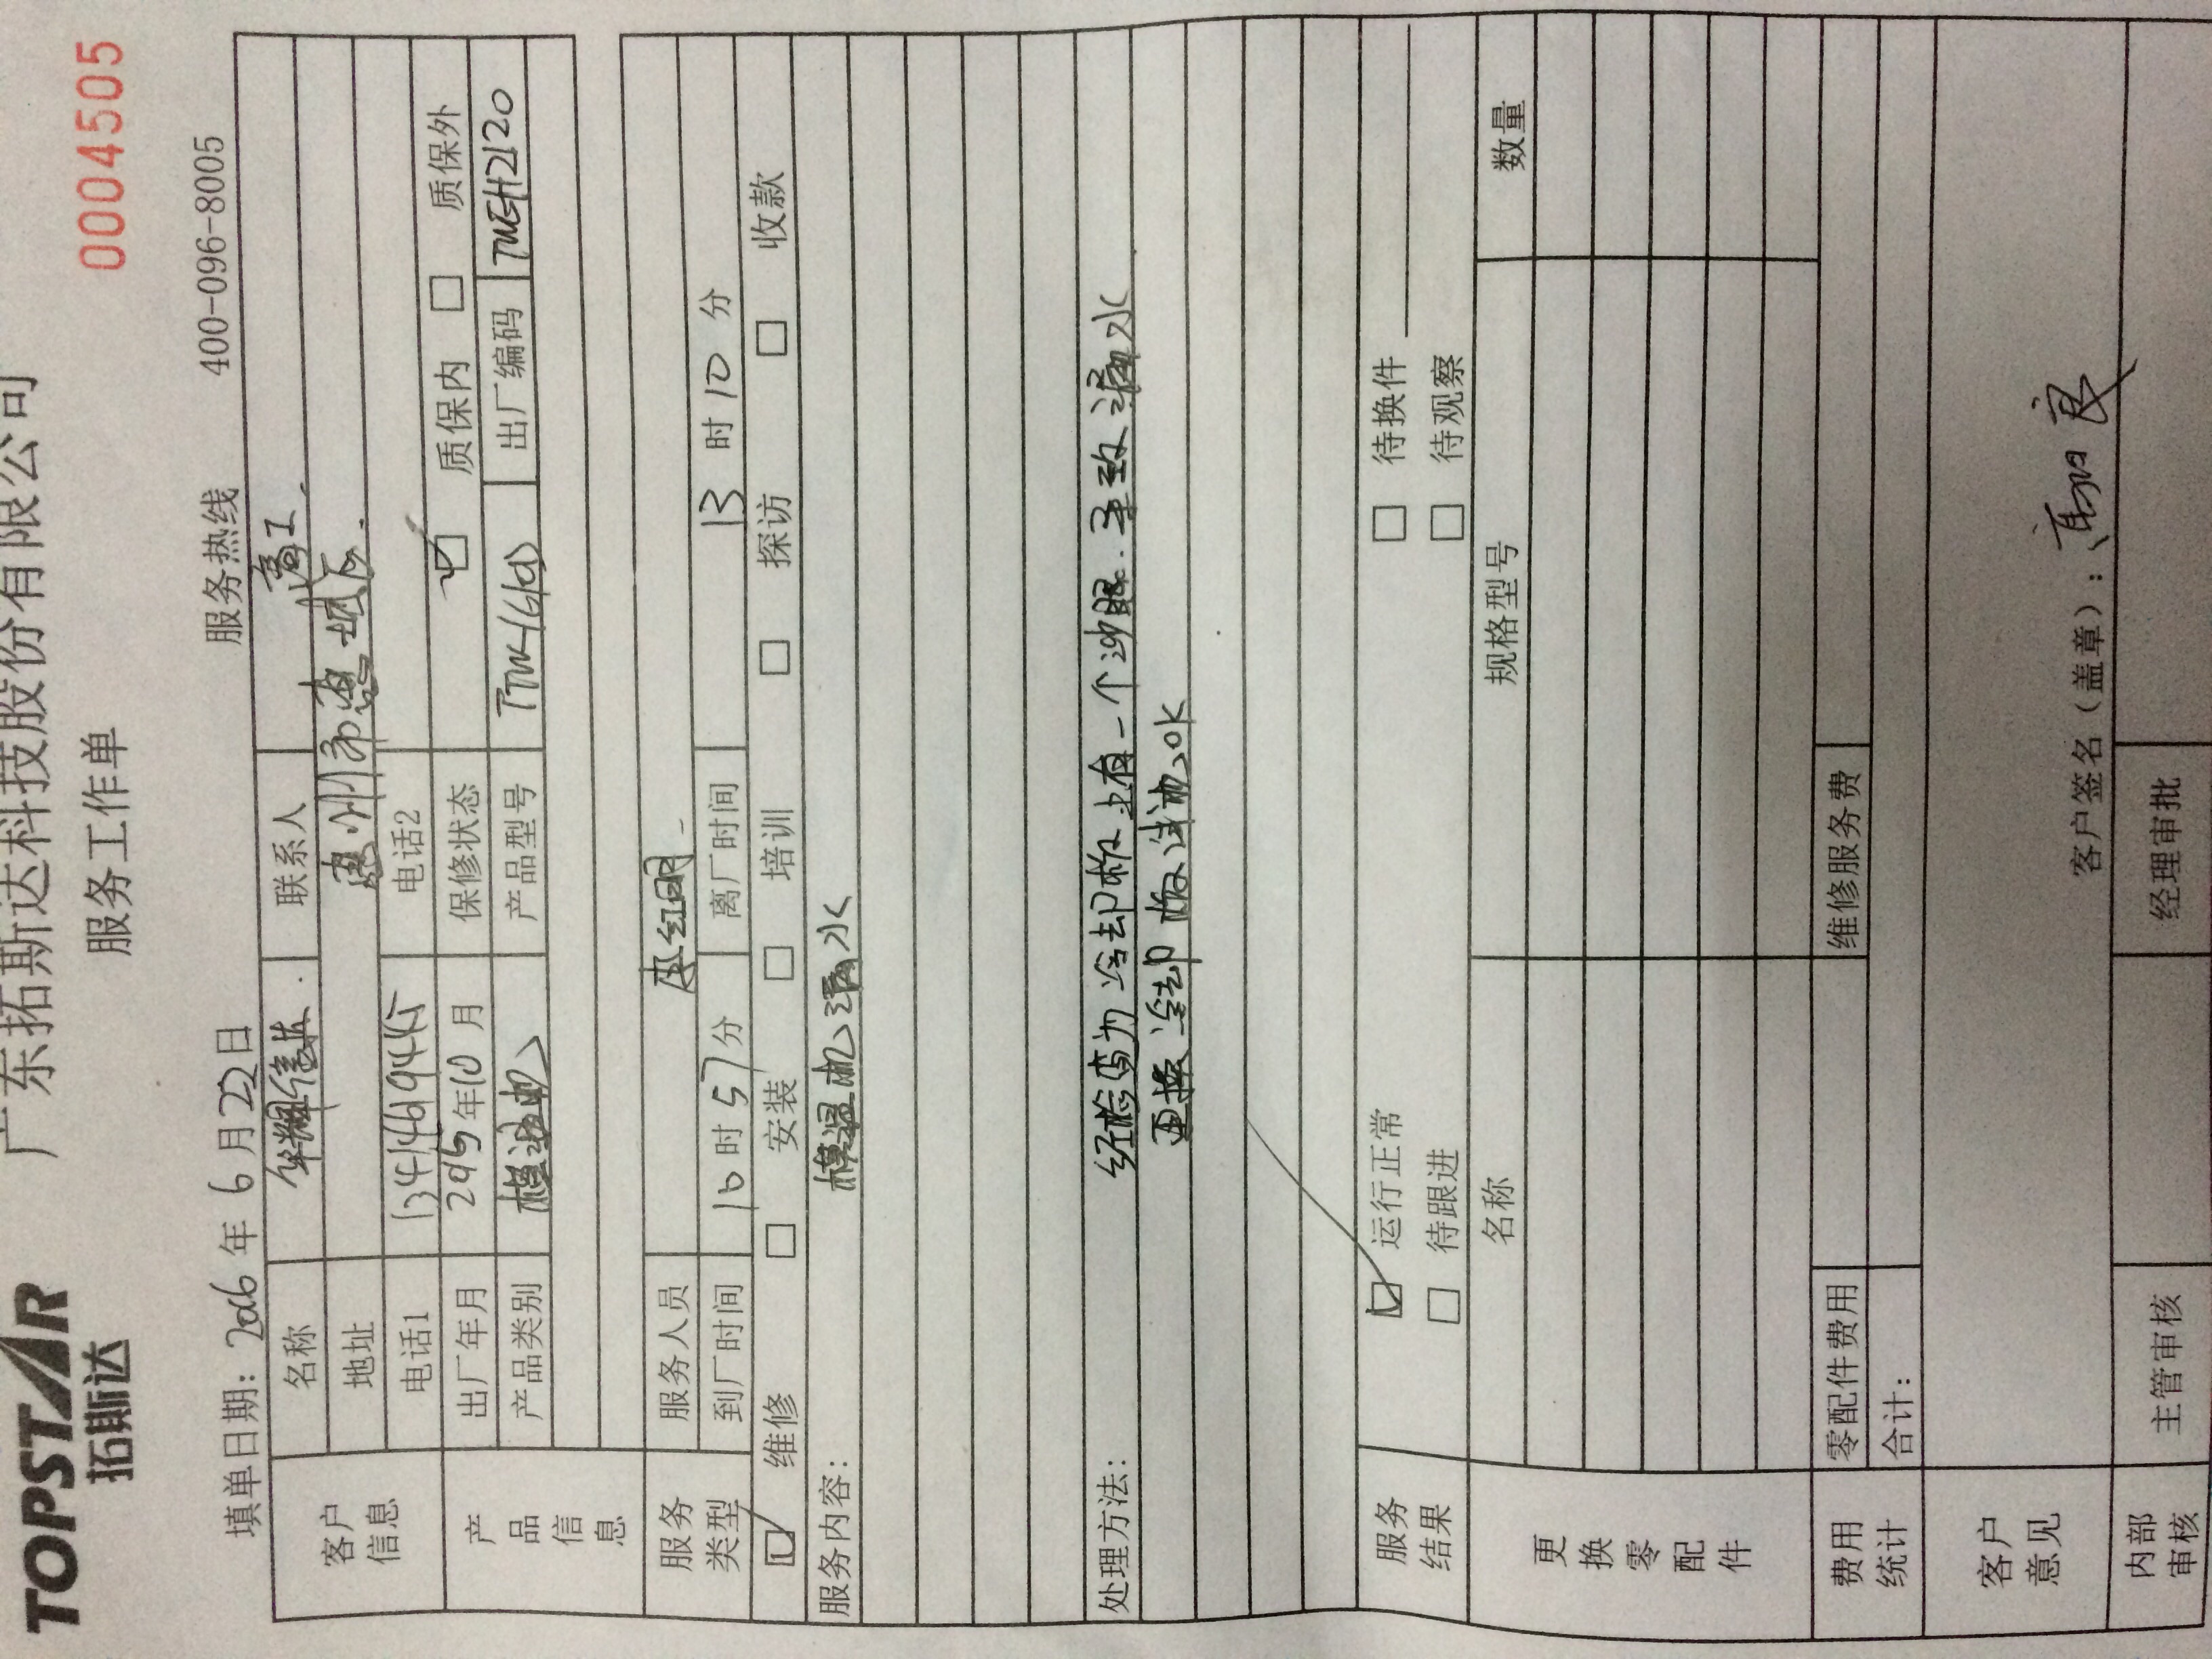 广东拓斯达科技股份有限公司
TOPSTAR
拓斯达
服务工作单
0004505
填单日期: 2016 年 6 月 22 日 服务热线 400-096-8005
客户信息 名称 华翔信达 联系人 高工
地址 惠州市惠城区
电话1 13414619445 电话2
产品信息 出厂年月 2015 年 10 月 保修状态 ☑ 质保内 □ 质保外
产品类别 模温机 产品型号 出厂编码
服务类型 服务人员 红明
到厂时间 10 时 57 分 离厂时间 13 时 10 分
☑ 维修 □ 安装 □ 培训 □ 探访 □ 收款
服务内容: 模温机漏水
处理方法: 经检查为冷却板上有一个沙眼.导致漏水
更换冷却板试机OK
服务结果 ☑ 运行正常 □ 待换件
□ 待跟进 □ 待观察
更换零配件 名称 规格型号 数量
费用统计 零配件费用 维修服务费
合计:
客户意见
客户签名(盖章):
内部审核 主管审核 经理审批